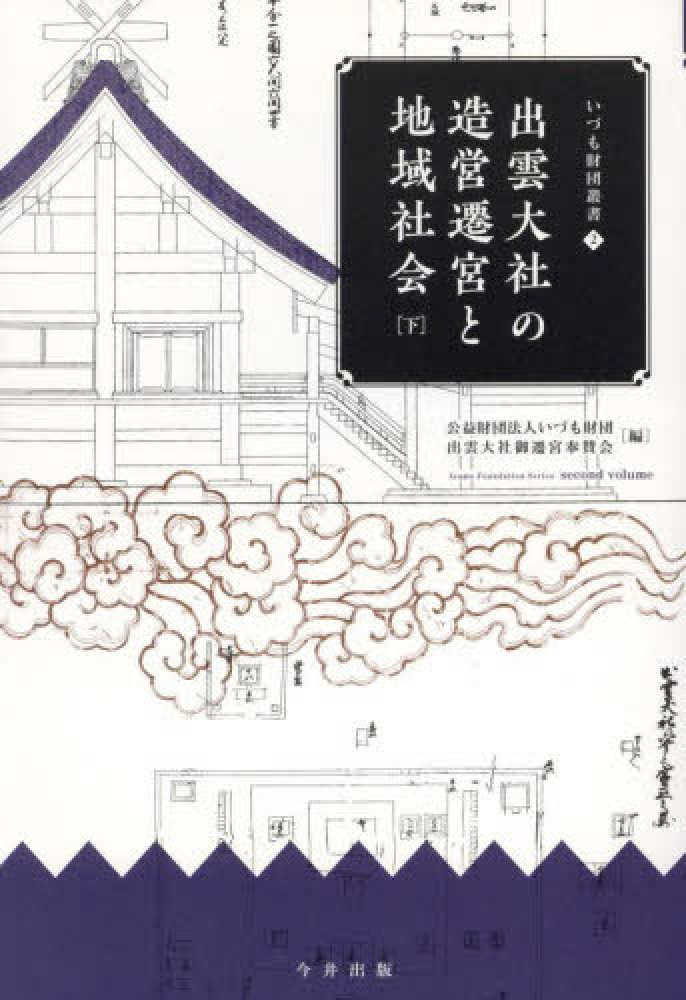 いづも財団叢書 2
出雲大社の
造営遷宮と
地域社会
[下]
公益財団法人いづも財団
出雲大社御遷宮奉賛会
[編]
Izumo Foundation Series second volume
今井出版